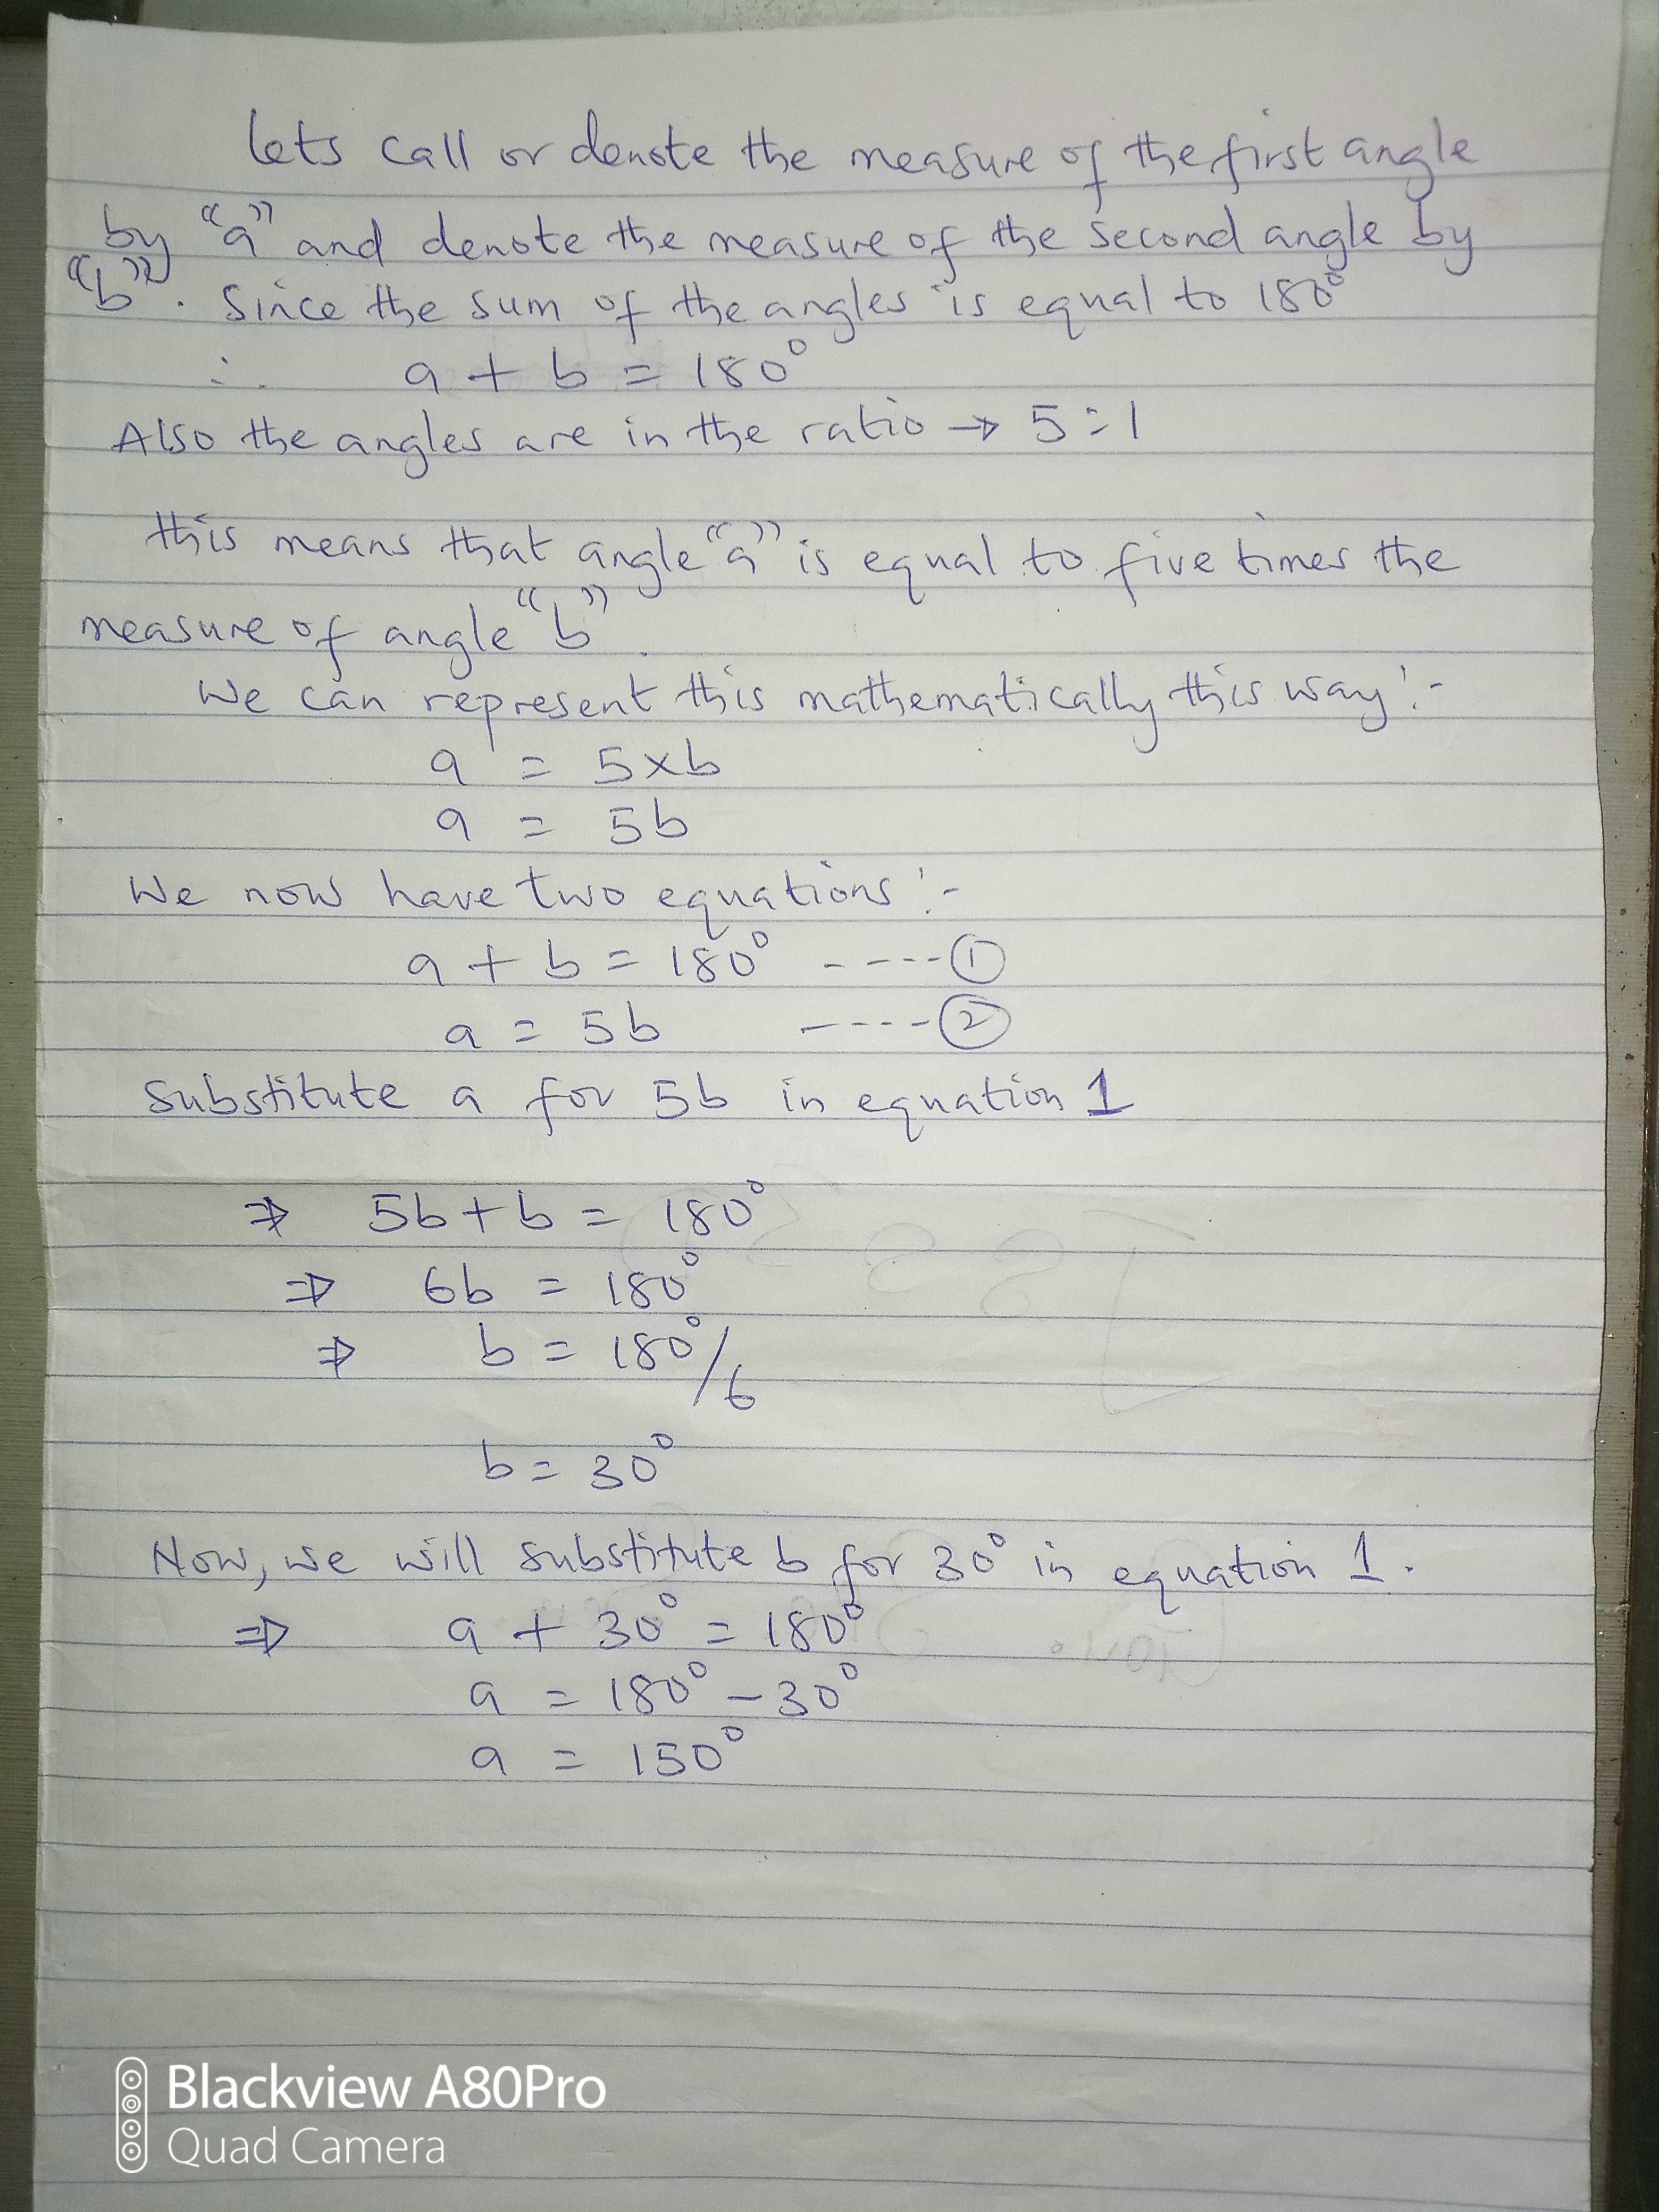 Lets call or denote the measure of the first angle
by "a" and denote the measure of the second angle by
"b". Since the sum of the angles is equal to 180°
∴ a + b = 180°
Also the angles are in the ratio → 5:1
this means that angle "a" is equal to five times the
measure of angle "b".
We can represent this mathematically this way:-
a = 5xb
a = 5b
We now have two equations:-
a + b = 180° ----①
a = 5b ----②
Substitute a for 5b in equation 1
⇒ 5b + b = 180°
⇒ 6b = 180°
⇒ b = 180°/6
b = 30°
Now, we will substitute b for 30° in equation 1.
⇒ a + 30° = 180°
a = 180° - 30°
a = 150°
Blackview A80Pro
Quad Camera